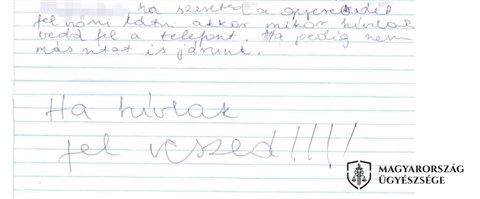 ha szeretnéd a gyerekeidet
fel nőni látni akkor mikor hívlak
vedd fel a telefont. Ha pedig nem
más utat is járunk.
Ha hívlak
fel veszed!!!!
MAGYARORSZÁG
ÜGYÉSZSÉGE